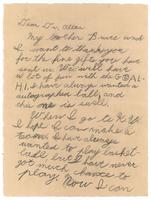 Dear Dr. Allen
My brother Bruce and
I want to thank you
for the fine gifts you have
sent us. We will have
a lot of fun with the GOAL-
HI. I have always wanted a
autographed ball, and
this one is swell.
When I go to K.U.
I hope I can make a
team. I have always
wanted to play basket-
ball but I have never
got much chance to
play. Now I can